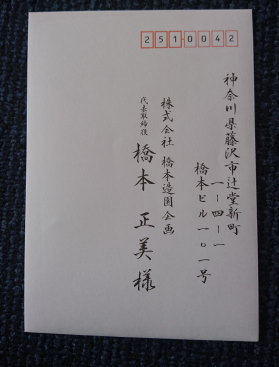 2510042
神奈川県藤沢市辻堂新町
一-四-一
橋本ビル一〇一号
株式会社 橋本造園企画
代表取締役
橋本 正美様